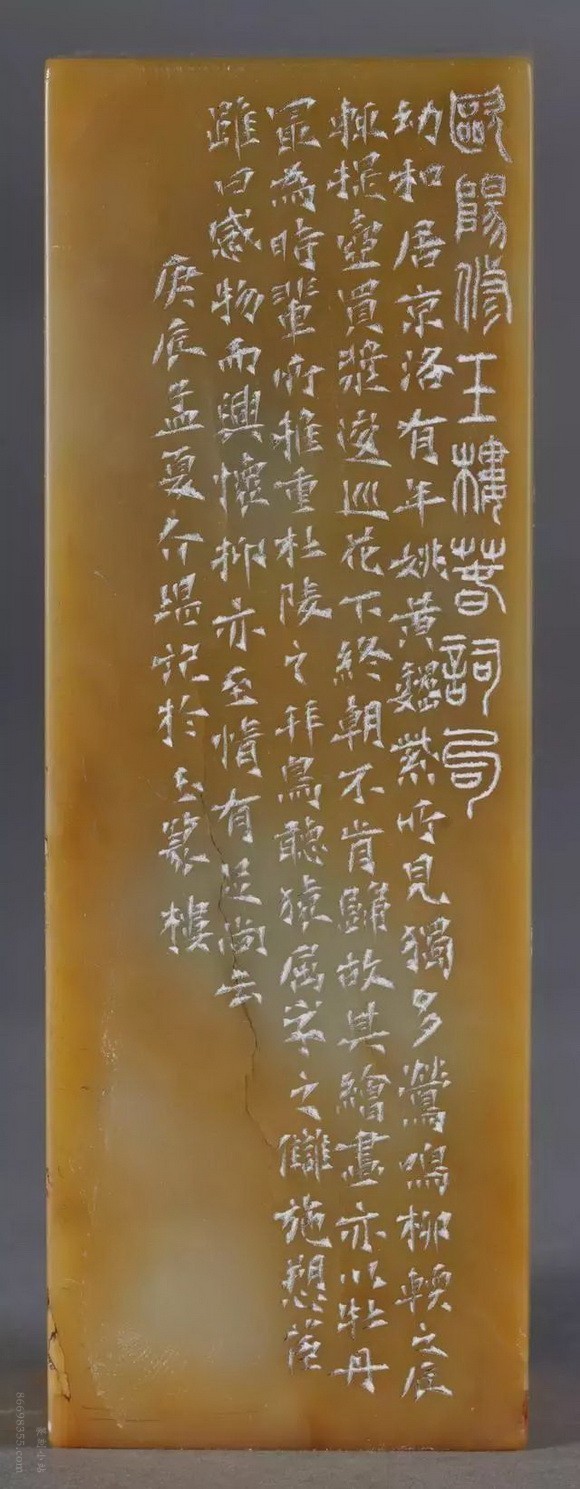 歐陽修玉樓春詞句
幼和居京洛有年姚黃魏紫所見獨多鶯鳴柳輭之辰
輒提壺買漿逡巡花下終朝不肯歸故其繪畫亦以牡丹
冣為時輩所推重杜陵之拜鳥聽猿之施
雖曰感物而興懷抑亦至情有足尚云
庚辰孟夏介堪記於玉篆樓
篆刻小站
86698355.com